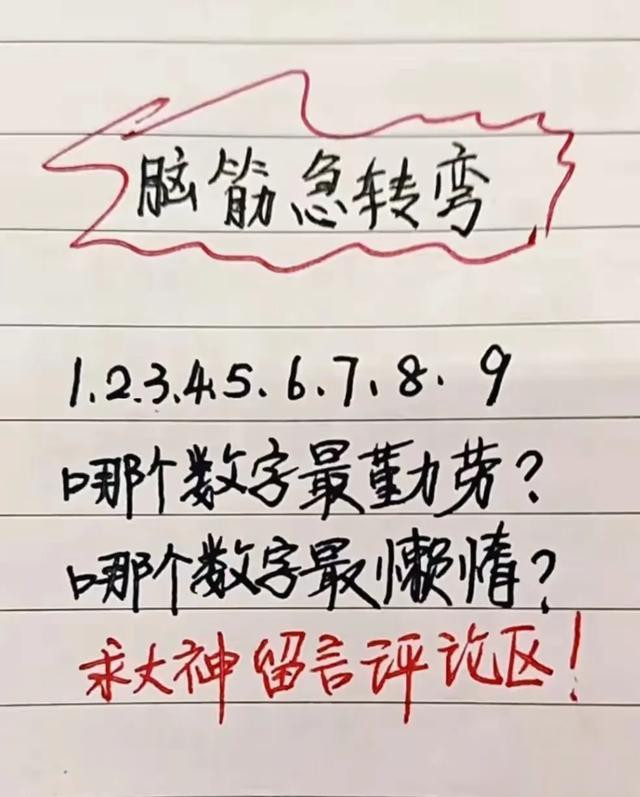 脑筋急转弯
1.2.3.4.5、6、7、8、9
哪个数字最勤劳?
哪个数字最懒惰?
求大神留言评论区!